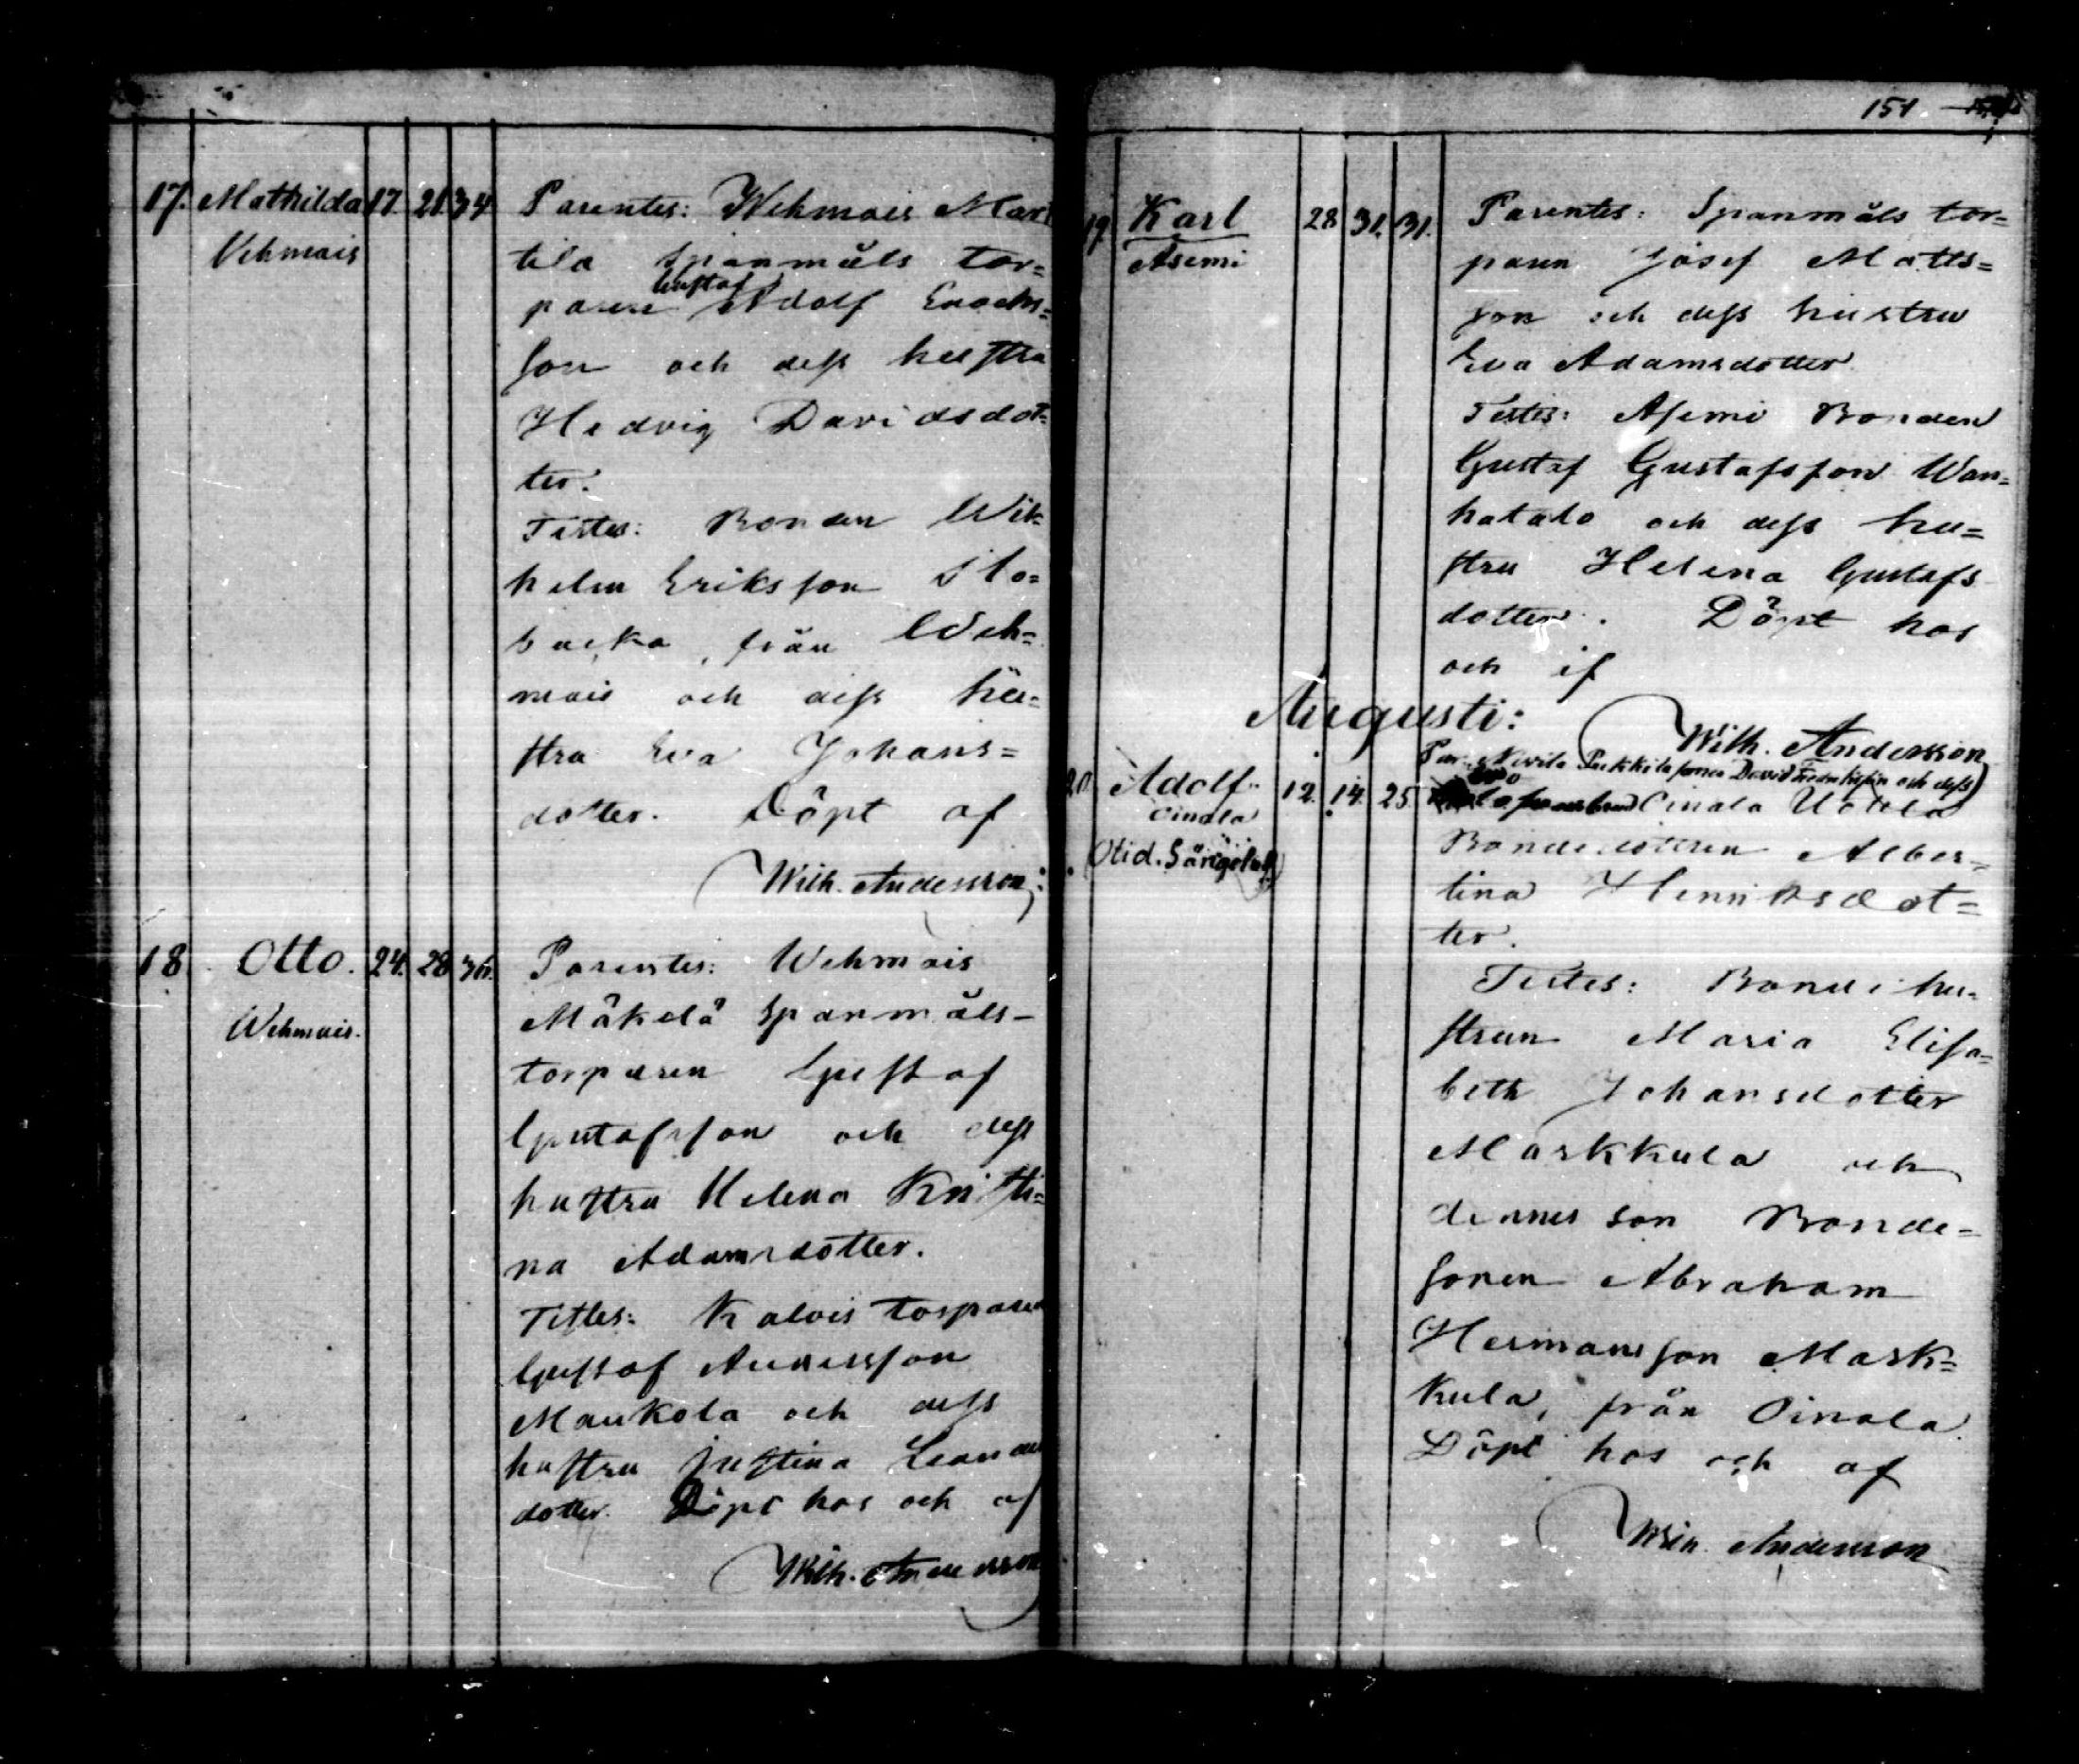 17. Mathilda 17. 21. 34. Parentes: Wehmais Mar
Vehmais tila Spanmåls tor=
Gustaf
paren Adolf Enochs=
son och dess hustru
Hedvig Davidsdot=
ter.
Testes: Bonden Wil=
helm Eriksson Ilo=
backa, från Weh=
mais och dess hu=
stru Eva Johans=
dotter. Döpt af
Wilh. Andersson:
18. Otto. 24. 28. 36. Parentes: Wehmais
Wehmais. Mäkelä Spanmåls-
torparen Gustaf
Gustafsson och dess
hustru Helena Kristi=
na Adamsdotter.
Testes: Kalois torparen
Gustaf Andersson
Maukola och dess
hustru Justina Leander
dotter. Döpt hos och af
Wilh. Andersson
151
19. Karl 28. 31. 31. Parentes: Spanmåls tor=
Asemi paren Josef Matts=
son och dess hustru
Eva Adamsdotter.
Testes: Asemi Bonden
Gustaf Gustafsson Wan=
hatalo och dess hu=
stru Helena Gustafs
dotter. Döpt hos
och af
Wilh. Andersson
Augusti:
Par: David Fredriksson och dess
20. Adolf. 12. 14. 25. Oinala Uotila
Oinala
Bondedottren Alber=
(Otid. Sängelag.)
tina Henriksdot=
ter.
Testes: Bonde hu=
strun Maria Elisa=
beth Johansdotter
Markkula och
dennes son Bonde=
sonen Abraham
Hermansson Mark=
kula, från Oinala.
Döpt hos och af
Wilh. Andersson